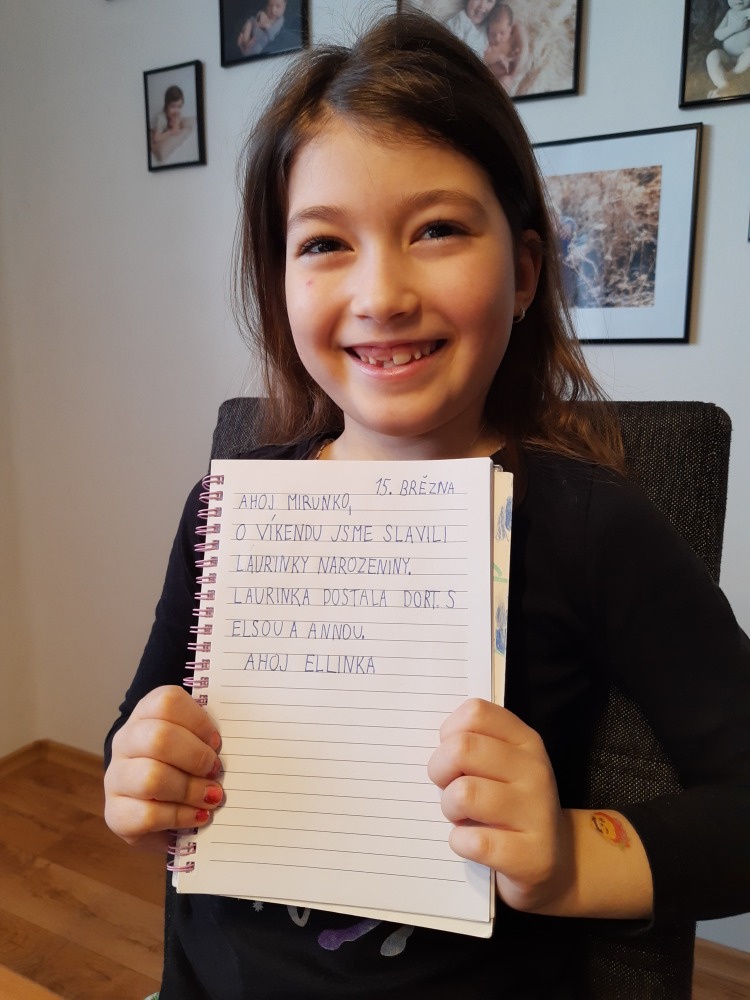 15. BRĚZNA
AHOJ MIRUNKO,
O VÍKENDU JSME SLAVILI
LAURINKY NAROZENINY.
LAURINKA DOSTALA DORT. S
ELSOU A ANNOU.
AHOJ ELLINKA